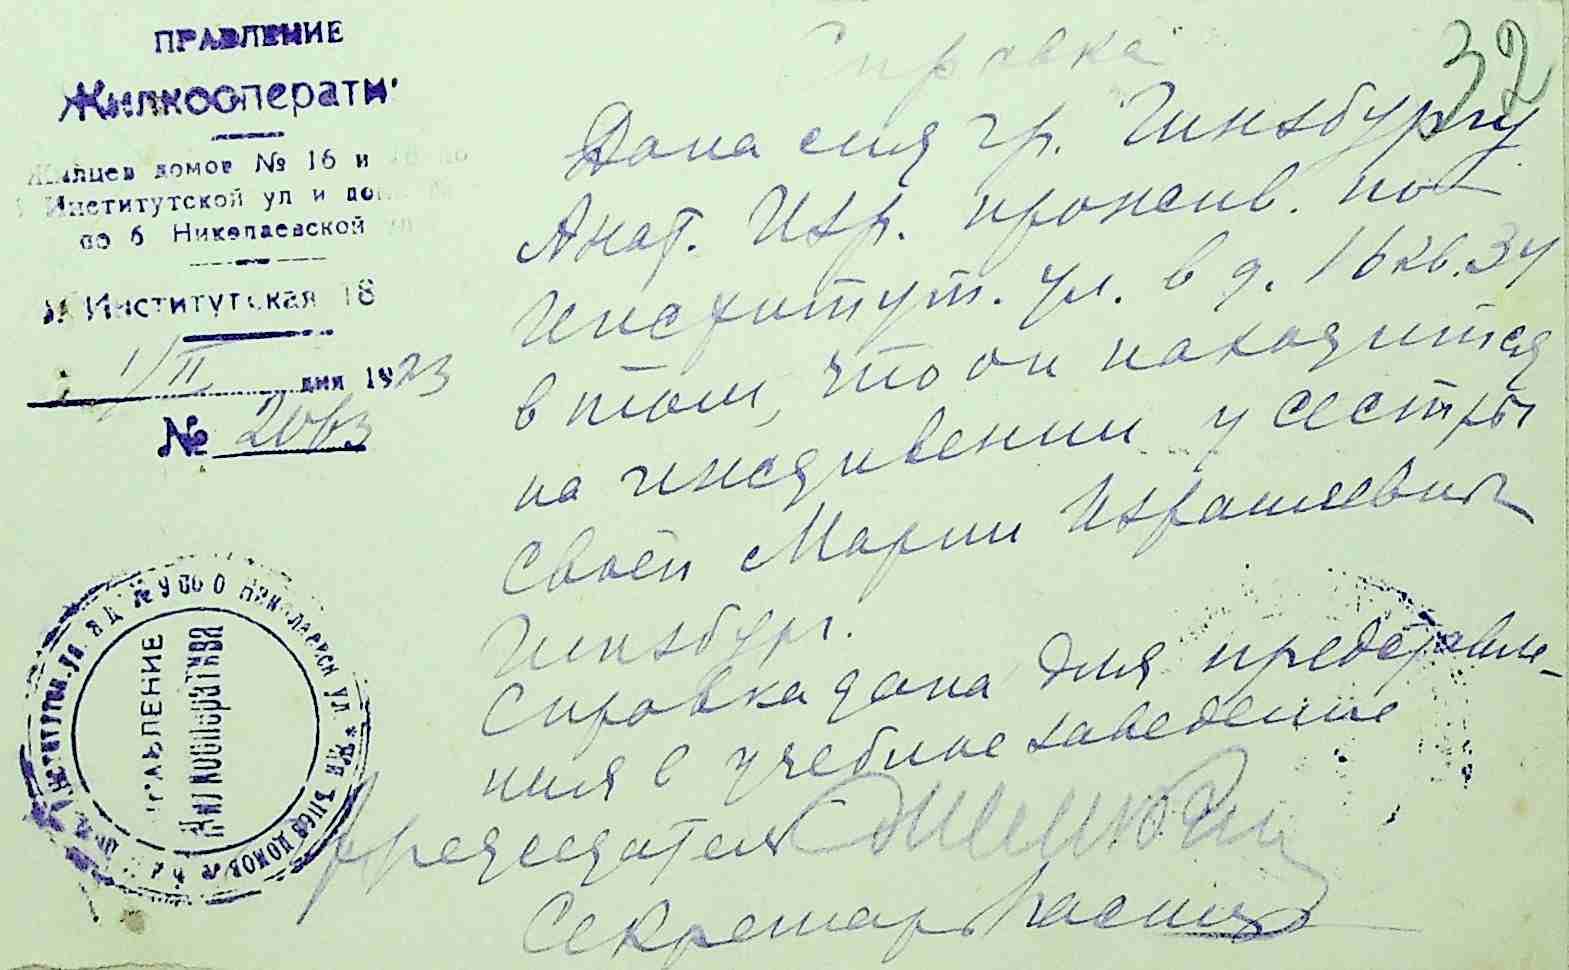 ПРАВЛЕНИЕ
Жилкооперати
Жильцев домов № 16 и
Институтской ул и дом
по 6 Николаевской
Институтская 18
1/II дня 1923
№
32
Справка
Дана сия гр. Гинзбургу
Анат. Изр. прожив. по
Институт. ул. в д. 16 кв. 34
в том, что он находится
на иждивении у сестры
своей Марии Израилевны
Гинзбург.
Справка дана для представле-
ния в учебное заведение
Председатель
Секретарь
Институтск. ул. и д. № 6 по Николаевск ул.
ПРАВЛЕНИЕ
Жилкооператива